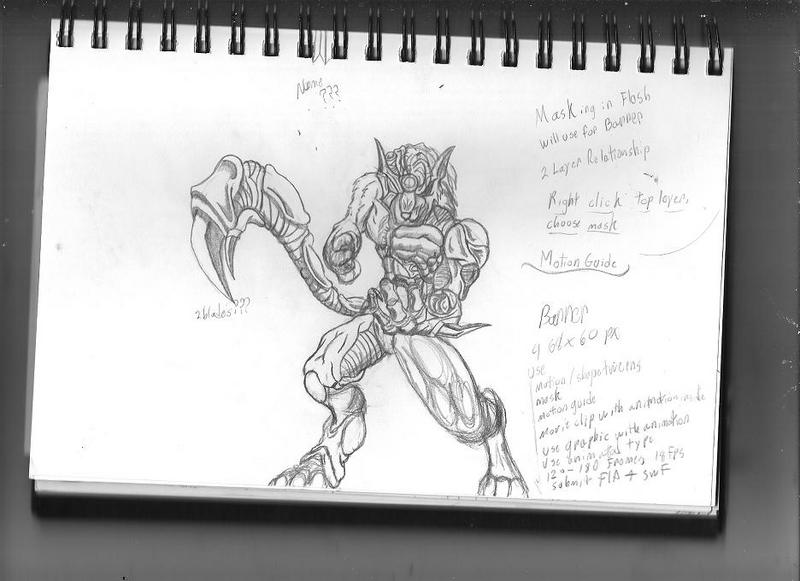 Name
???
Masking in Flash
will use for Banner
2 Layer Relationship
Right click top layer,
choose mask
Motion Guide
2 blades???
Banner
468 x 60 px
use
motion / shapetweens
mask
motion guide
movie clip with animation inside
use graphic with animation
use animated type
120-180 Frames 18 Fps
submit FLA + SWF